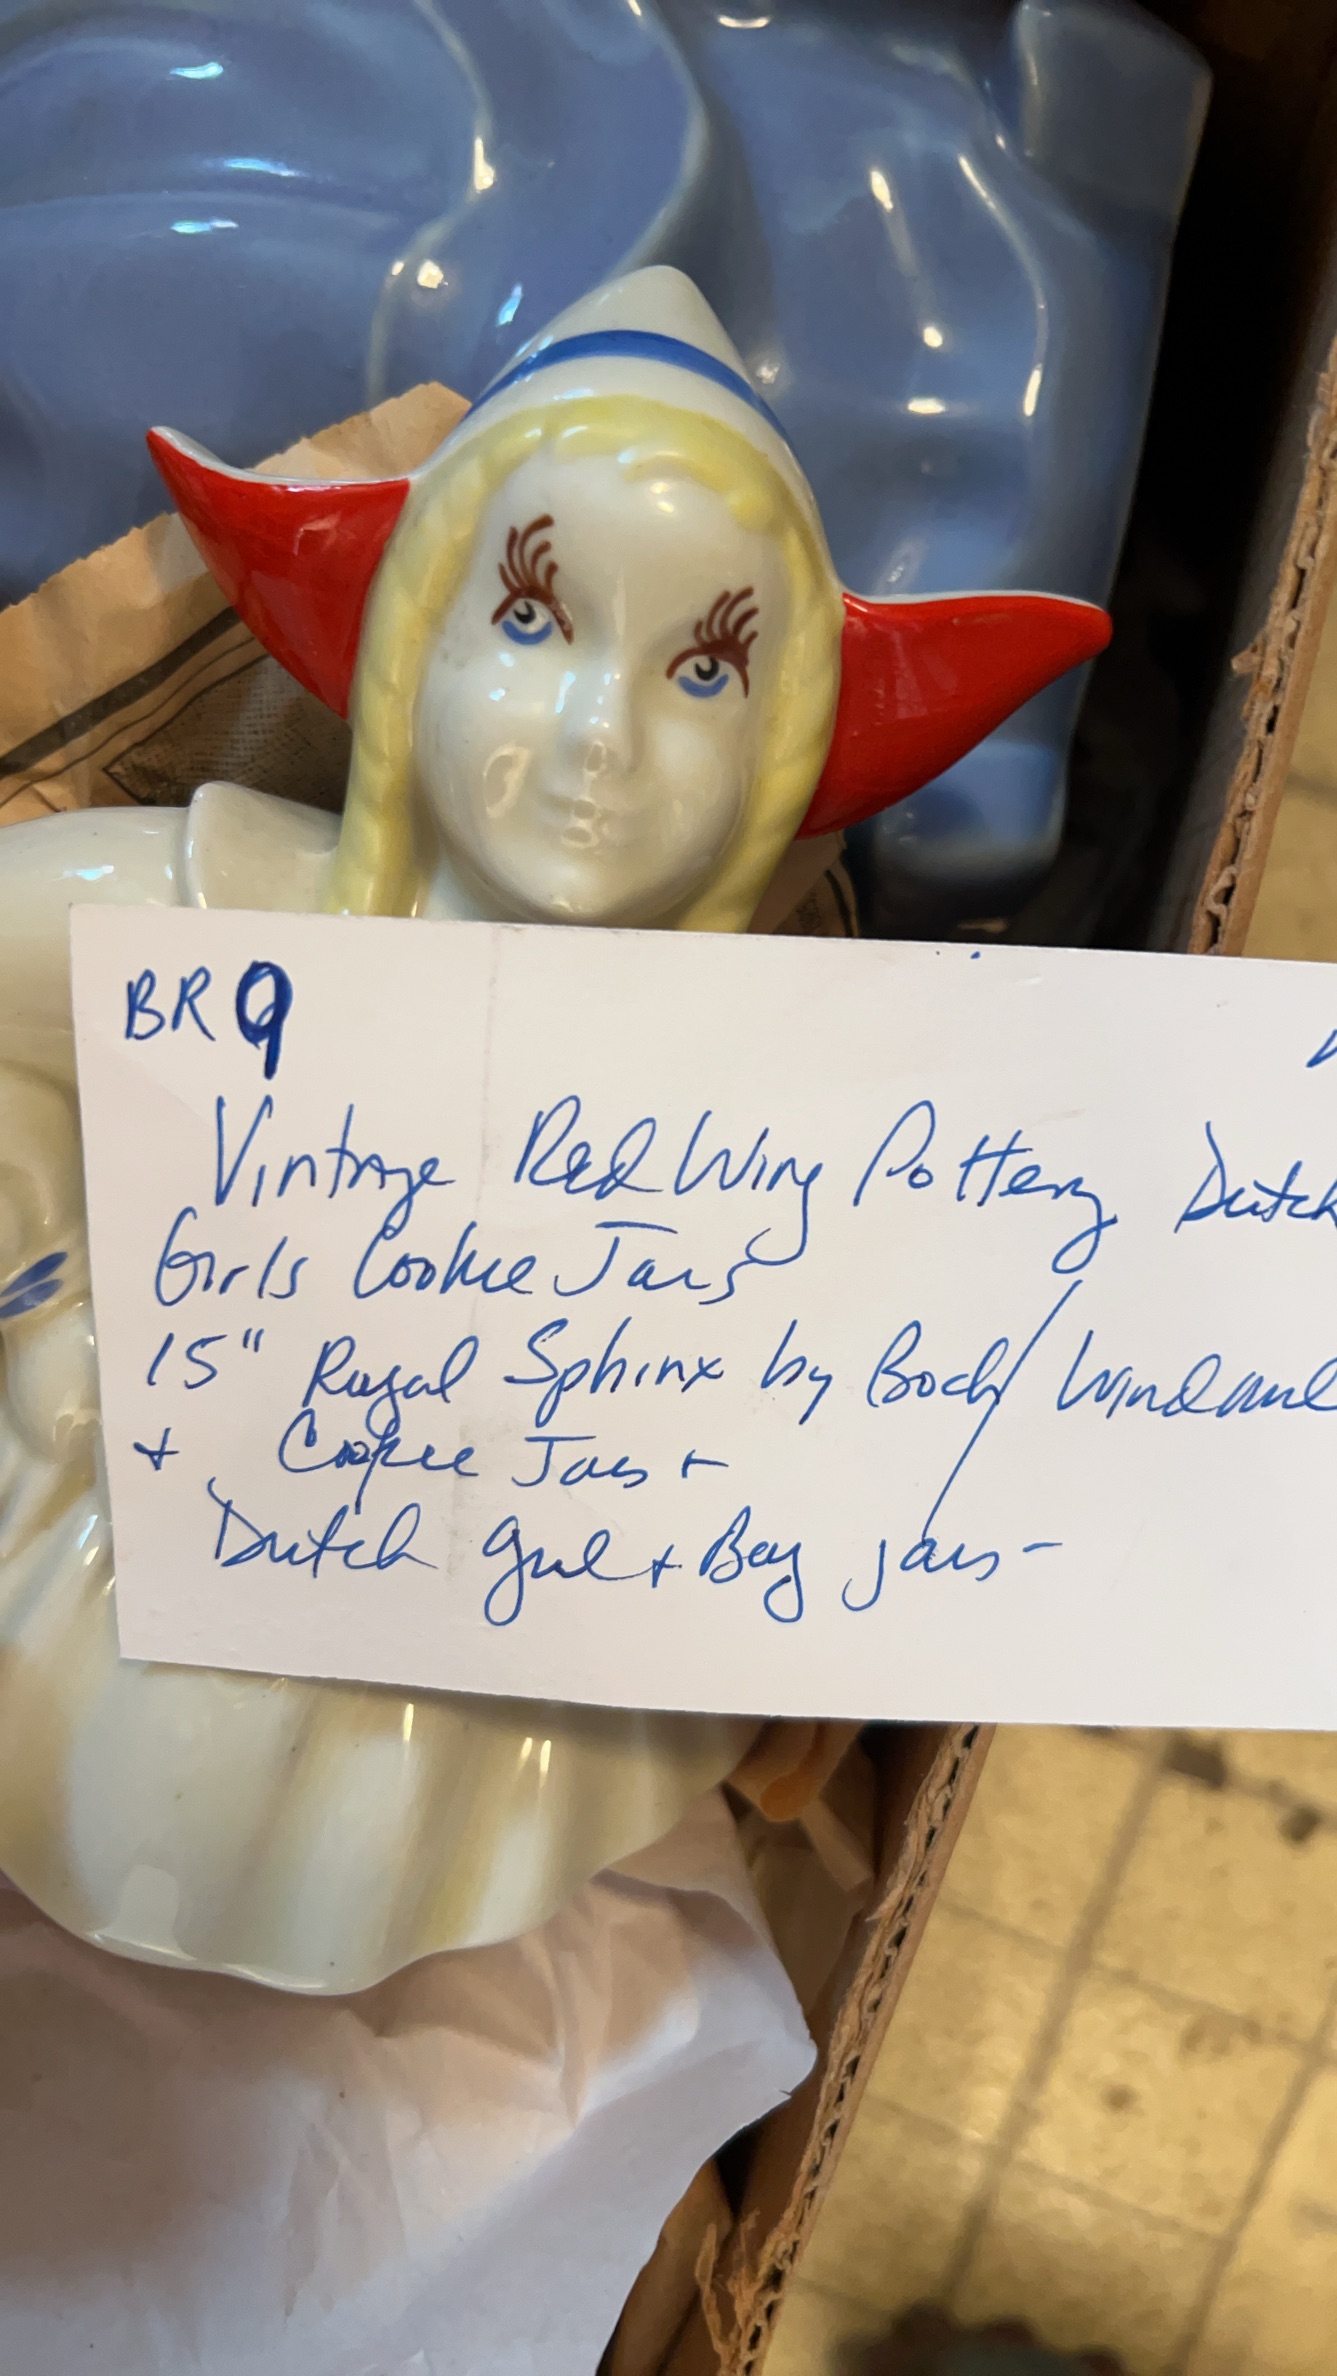 BR 9
Vintage Red Wing Pottery Dutch
Girls Cookie Jars
15" Royal Sphinx by Boch
+ Cookie Jars +
Dutch Girl + Boy jars -